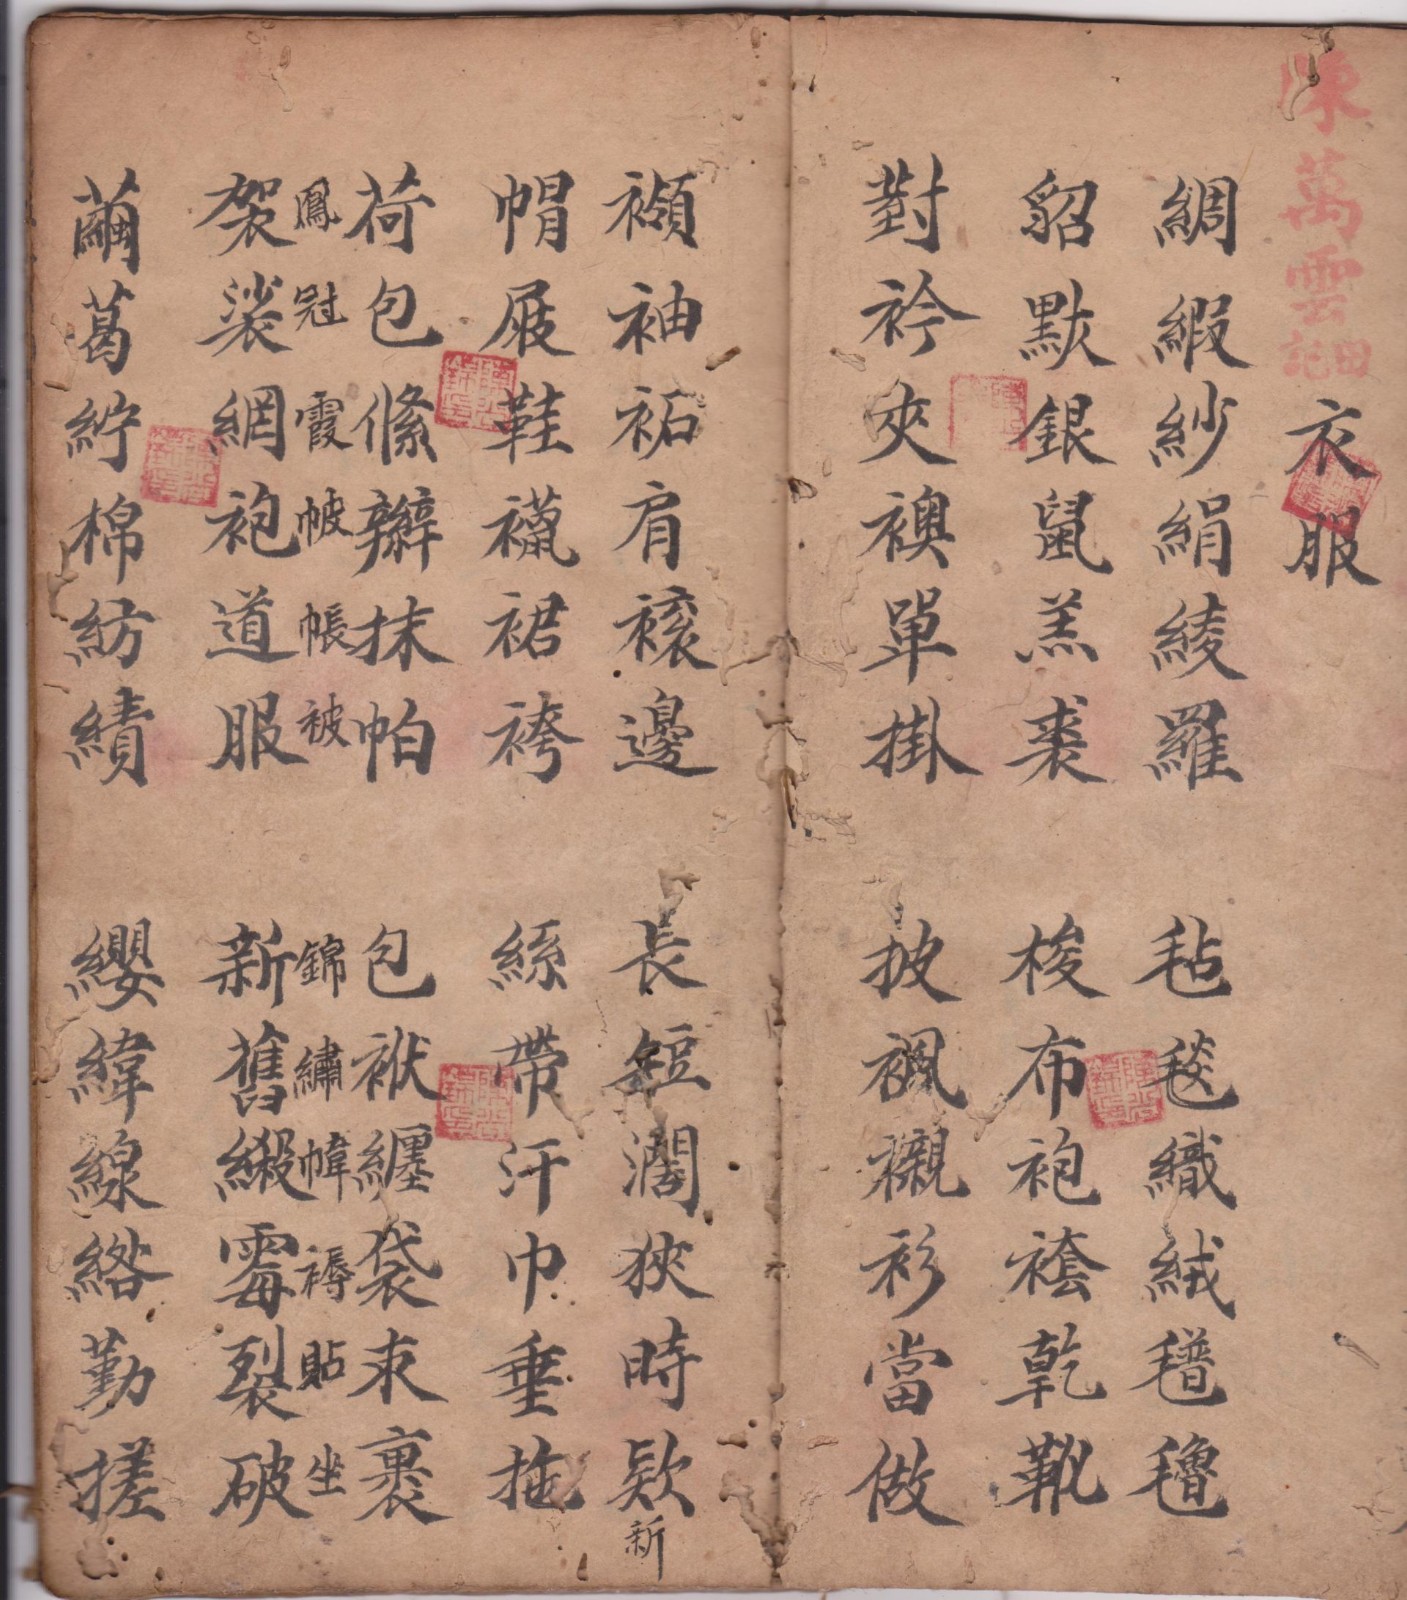 陳萬雲記
衣服
綢緞紗絹綾羅 毡毯織絨氆氇
貂默銀鼠羔裘 梭布袍套乾靴
對衿夾襖單掛 披襯衫當做
襴袖祏肩褪邊 長短濶狹時款
新
帽屐鞋襪裙袴 絲帶汗巾垂拖
荷包絛辮抹帕 包袱纏袋束裹
鳳冠霞帔帳被 錦繡幃褥貼坐
袈裟網袍道服 新舊緞霉裂破
繭葛紵棉紡績 纓緯線綹勤搓